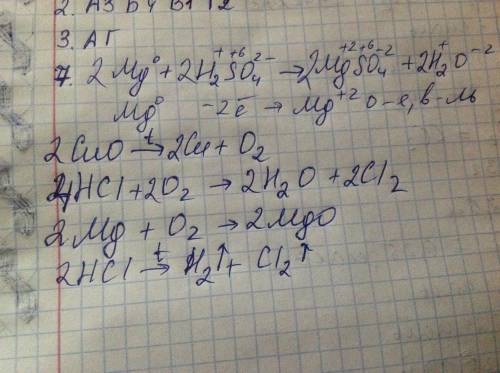 2. А3 Б4 В1 Г2
3. А Г
7. 2Mg⁰ + 2H₂⁺S⁺⁶O₄²⁻ → 2Mg⁺²S⁺⁶O₄⁻² + 2H₂⁺O⁻²
Mg⁰ -2ē → Mg⁺² о-е, в-ль
2CuO →ᵗ 2Cu + O₂
4HCl + 2O₂ → 2H₂O + 2Cl₂
2Mg + O₂ → 2MgO
2HCl →ᵗ H₂↑ + Cl₂↑